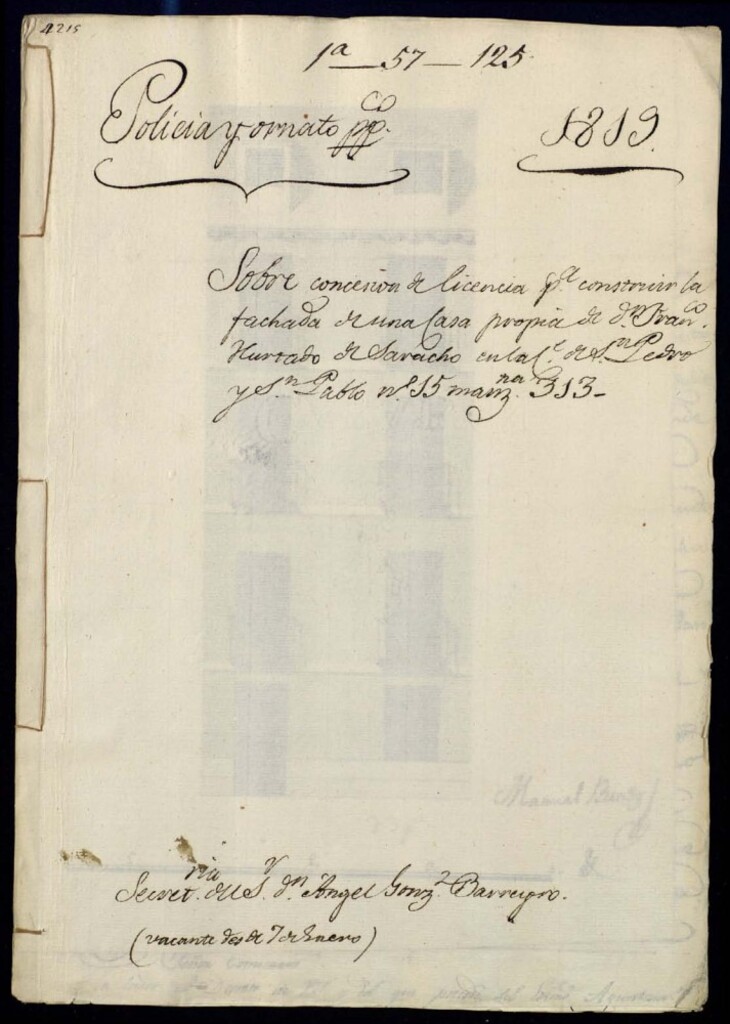 4215
1ª — 57 — 125
Policia y ornato pp.co
1819.
Sobre concesion de licencia p.ª construir la
fachada de una Casa propia de d.n Fran.co
Hurtado de Saracho en la C.e de S.n Pedro
y S.n Pablo n.º 15 manz.na 313-
Secret.ria del S.r d.n Angel Gonz.z Barreyro.
(vacante desde 7 de Enero)
Manuel